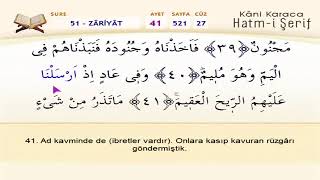 SURE AYET SAYFA CÜZ Kâni Karaca
51 - ZÂRİYÂT 41 521 27 Hatm-i Şerif
مَجْنُونٌ ﴿٣٩﴾ فَاَخَذْنَاهُ وَجُنُودَهُ فَنَبَذْنَاهُمْ فِى
الْيَمِّ وَهُوَ مُلِيمٌ ﴿٤٠﴾ وَفِى عَادٍ اِذْ اَرْسَلْنَا
عَلَيْهِمُ الرّٖيحَ الْعَقٖيمَ ﴿٤١﴾ مَاتَذَرُ مِنْ شَىْءٍ
41. Ad kavminde de (ibretler vardır). Onlara kasıp kavuran rüzgârı
göndermiştik.